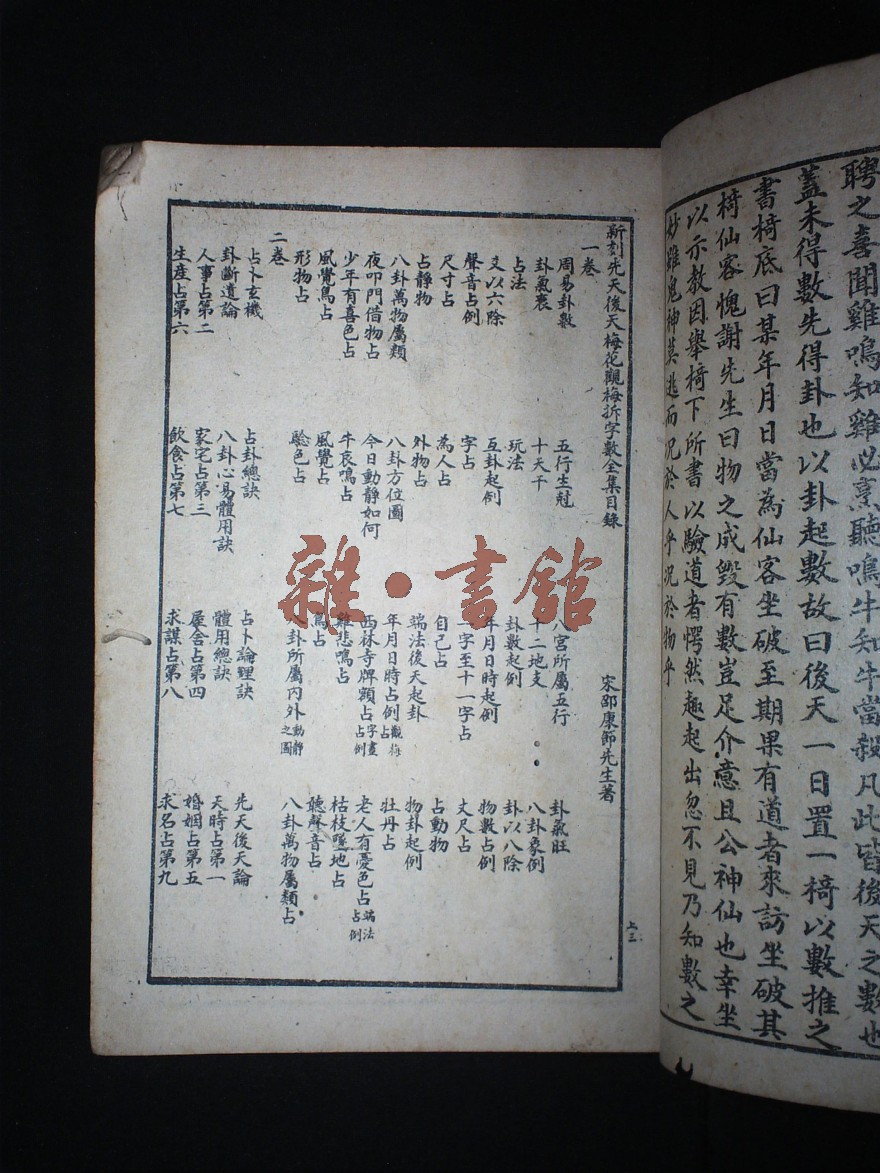 聘之喜聞雞鳴知雞必烹聽鳴牛知牛當殺凡此皆後天之數也
蓋未得數先得卦也以卦起數故曰後天一日置一椅以數推之
書椅底曰某年月日當為仙客坐破至期果有道者來訪坐破其
椅仙客愧謝先生曰物之成毀有數豈足介意且公神仙也幸坐
以示教因舉椅下所書以驗道者愕然趣起出忽不見乃知數之
妙雖鬼神莫逃而況於人乎況於物乎
新刻先天後天梅花觀梅拆字數全集目錄
宋邵康節先生著
一卷
周易卦數 五行生剋 八宮所屬五行 卦氣旺
卦氣衰 十天干 十二地支 八卦象例
占法 玩法 卦數起例 卦以八除
爻以六除 互卦起例 年月日時起例 物數占例
聲音占例 字占 一字至十一字占 丈尺占
尺寸占 為人占 自己占 占動物
占靜物 外物占 端法後天起卦 物卦起例
八卦萬物屬類 八卦方位圖 年月日時占例觀梅占 牡丹占
夜叩門借物占 今日動靜如何 西林寺牌額占字畫占例 老人有憂色占端法占例
少年有喜色占 牛哀鳴占 雞悲鳴占 枯枝墜地占
風覺鳥占 風覺占 鳥占 聽聲音占
形物占 驗色占 八卦所屬內外動靜之圖 八卦萬物屬類占
二卷
占卜玄機 占卦總訣 占卜論理訣 先天後天論
卦斷遺論 八卦心易體用訣 體用總訣 天時占第一
人事占第二 家宅占第三 屋舍占第四 婚姻占第五
生產占第六 飲食占第七 求謀占第八 求名占第九
上三
雜·書館